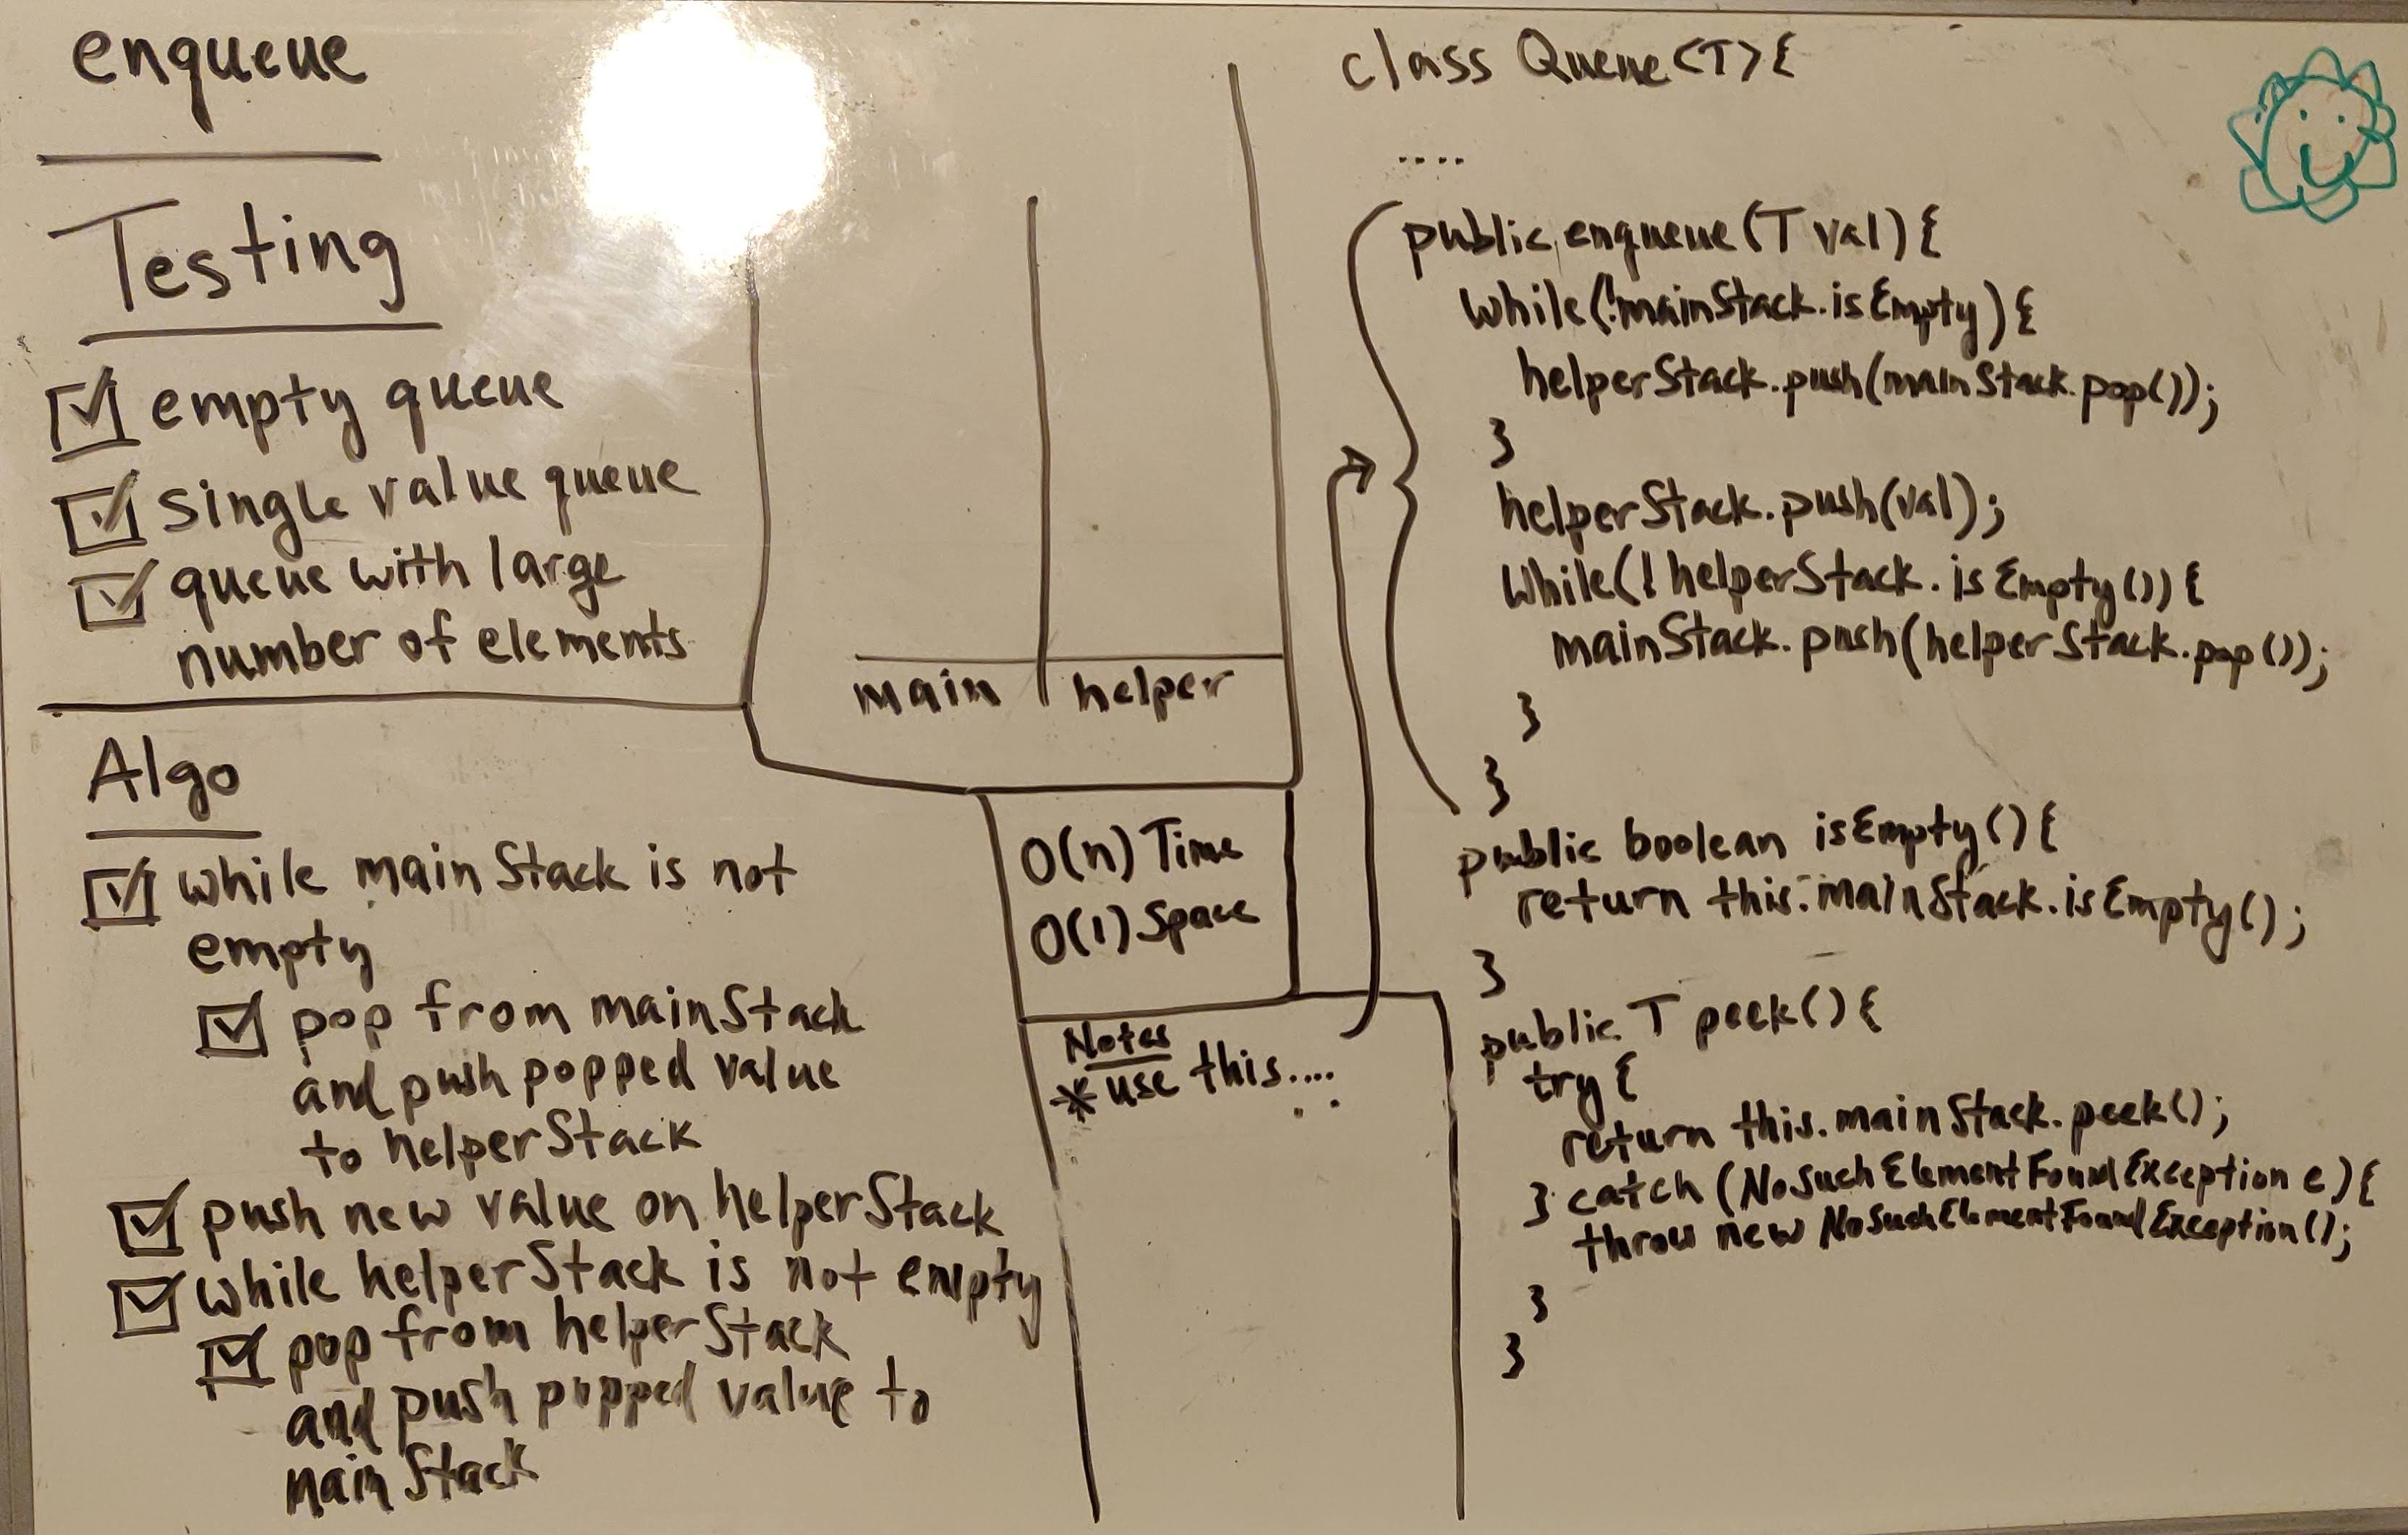 enqueue
Testing
empty queue
single value queue
queue with large
number of elements
Algo
while mainStack is not
empty
pop from mainStack
and push popped value
to helperStack
push new value on helperStack
while helperStack is not empty
pop from helperStack
and push popped value to
mainStack
main helper
O(n) Time
O(1) Space
Notes
* use this....
class Queue<T>{
....
public enqueue(T val){
while(!mainStack.isEmpty){
helperStack.push(mainStack.pop());
}
helperStack.push(val);
while(!helperStack.isEmpty()){
mainStack.push(helperStack.pop());
}
}
public boolean isEmpty(){
return this.mainStack.isEmpty();
}
public T peek(){
try{
return this.mainStack.peek();
} catch (NoSuchElementFoundException e){
throw new NoSuchElementFoundException();
}
}